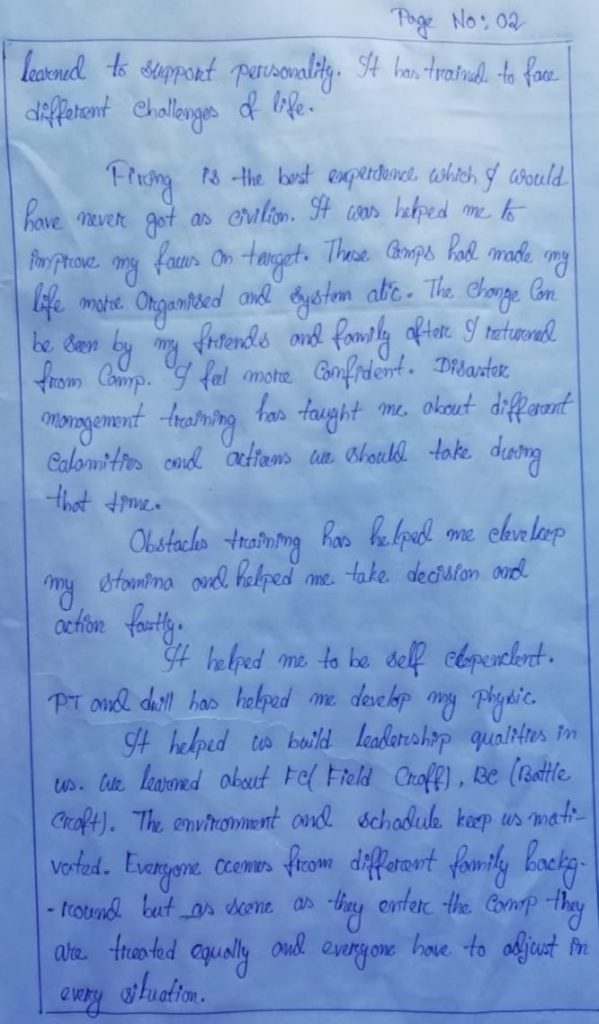 Page No: 02
learned to support personality. It has trained to face
different challenges of life.
Firing is the best experience which I would
have never got as civilion. It was helped me to
improve my focus on target. These Camps had made my
life more Organised and System atic. The change Can
be seen by my friends and family after I returned
from Camp. I feel more Confident. Disaster
management training has taught me about different
Calamities and actions we should take during
that time.
Obstacles training has helped me develop
my stamina and helped me take decision and
action fastly.
It helped me to be self dependent.
PT and drill has helped me develop my physic.
It helped us build leadership qualities in
us. We learned about FC( Field Craft), BC (Battle
Craft). The environment and schedule keep us moti-
vated. Everyone comes from different family backg-
-round but as soone as they enter the Camp they
are treated equally and everyone have to adjust in
every situation.